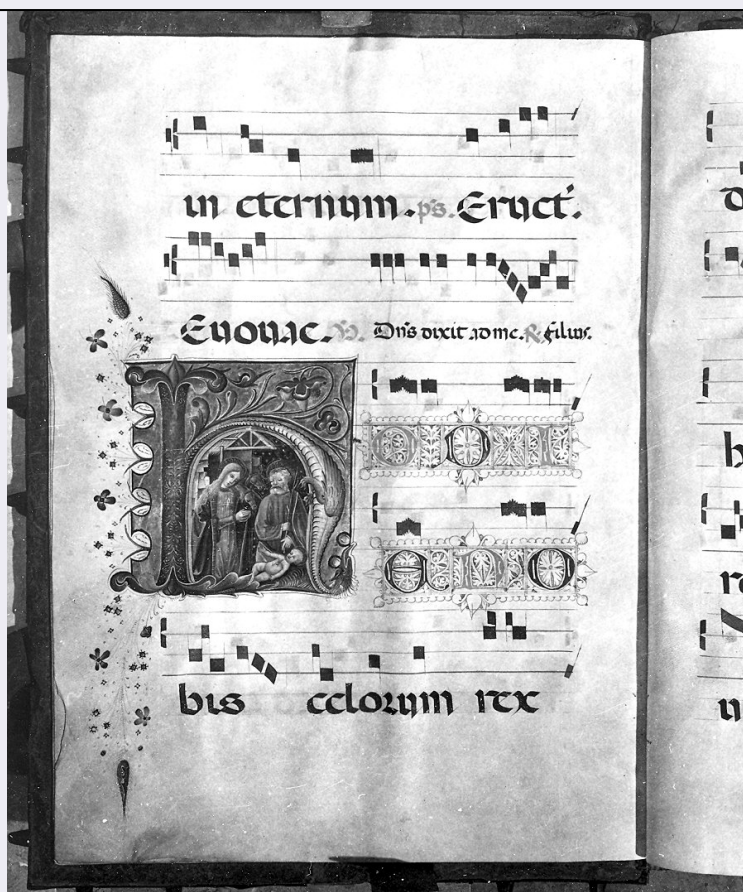 in eternum. ps. Eruct'.
Euouae. Dn's dixit ad me. & Filius.
HODI
E NO
bis celorum rex